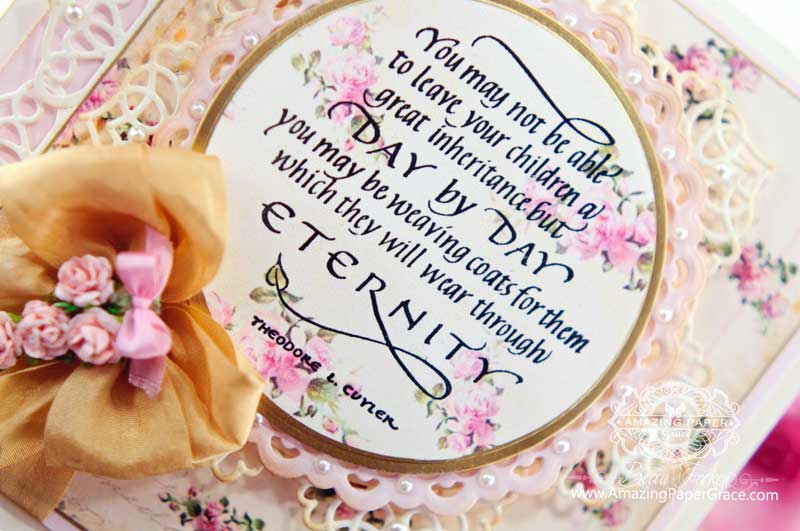 You may not be able
to leave your children a
great inheritance but
DAY by DAY
you may be weaving coats for them
which they will wear through
ETERNITY
THEODORE L. CUYLER
AMAZING PAPER
Grace
www.AmazingPaperGrace.com